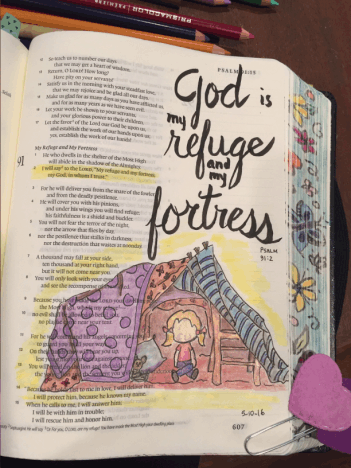 PRISMACOLOR PREMIER
PSALM 90:13
12 So teach us to number our days
that we may get a heart of wisdom.
13 Return, O LORD! How long?
Have pity on your servants!
14 Satisfy us in the morning with your steadfast love,
that we may rejoice and be glad all our days.
15 Make us glad for as many days as you have afflicted us,
and for as many years as we have seen evil.
16 Let your work be shown to your servants,
and your glorious power to their children.
17 Let the favor of the Lord our God be upon us,
and establish the work of our hands upon us;
yes, establish the work of our hands!
My Refuge and My Fortress
91
He who dwells in the shelter of the Most High
will abide in the shadow of the Almighty.
I will say to the LORD, "My refuge and my fortress,
my God, in whom I trust."
For he will deliver you from the snare of the fowler
and from the deadly pestilence.
He will cover you with his pinions,
and under his wings you will find refuge;
his faithfulness is a shield and buckler.
You will not fear the terror of the night,
nor the arrow that flies by day,
nor the pestilence that stalks in darkness,
nor the destruction that wastes at noonday.
A thousand may fall at your side,
ten thousand at your right hand,
but it will not come near you.
You will only look with your eyes
and see the recompense
Because you
the Most
no evil shall
For he
to guard you
On their
You will
the
Because he holds fast to me in love, I will deliver him;
I will protect him, because he knows my name.
When he calls to me, I will answer him;
I will be with him in trouble;
I will rescue him and honor him.
God is
my
refuge
and
my
fortress
PSALM
91:2
5-10-16
607